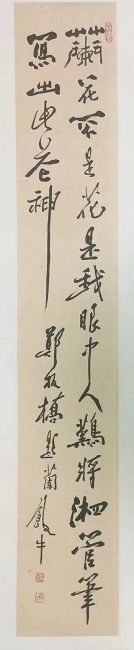 蘭花不是花是我眼中人難將湘管筆
寫出此花神 鄭板橋題蘭